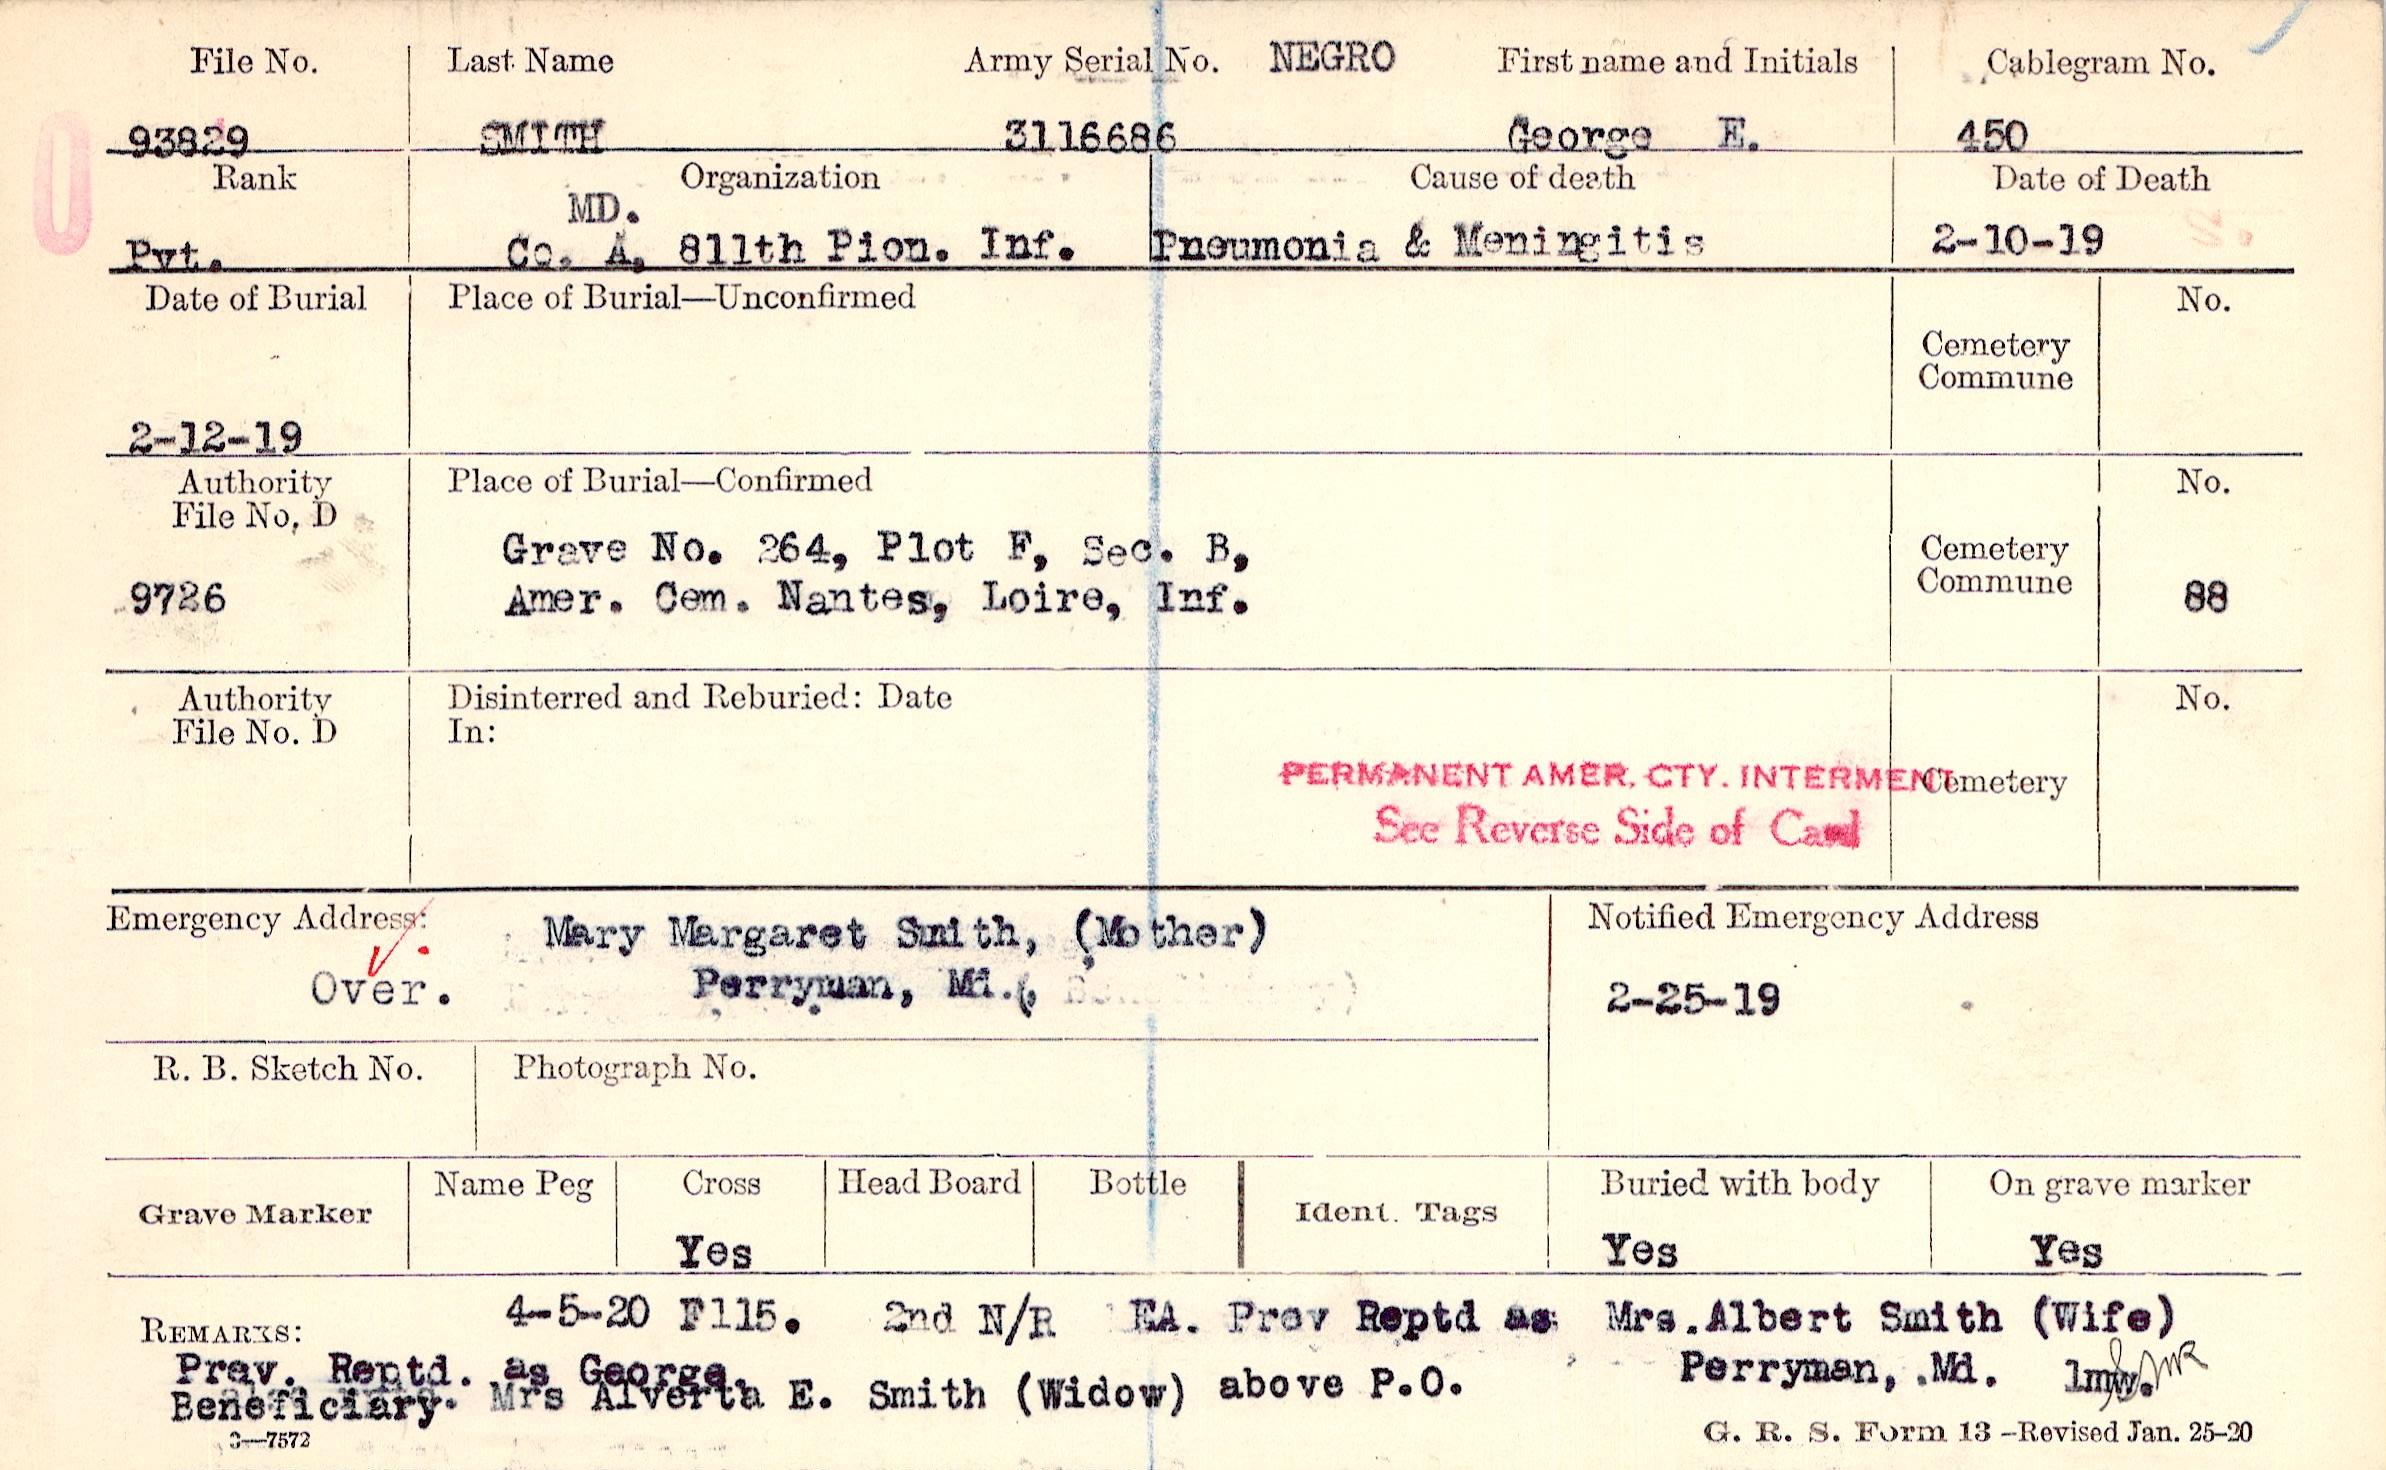 File No. Last Name Army Serial No. NEGRO First name and Initials Cablegram No.
93829 SMITH 3116686 George E. 450
Rank Organization Cause of death Date of Death
MD.
Pvt. Co. A, 811th Pion. Inf. Pneumonia & Meningitis 2-10-19
Date of Burial Place of Burial—Unconfirmed No.
Cemetery
Commune
2-12-19
Authority Place of Burial—Confirmed No.
File No. D
Grave No. 264, Plot F, Sec. B, Cemetery
9726 Amer. Cem. Nantes, Loire, Inf. Commune 88
Authority Disinterred and Reburied: Date No.
File No. D In:
PERMANENT AMER. CTY. INTERMENT Cemetery
See Reverse Side of Card
Emergency Address: Mary Margaret Smith, (Mother) Notified Emergency Address
Over. Perryman, Md. 2-25-19
R. B. Sketch No. Photograph No.
Grave Marker Name Peg Cross Head Board Bottle Ident. Tags Buried with body On grave marker
Yes Yes Yes
REMARKS: 4-5-20 F115. 2nd N/R EA. Prev Reptd as Mrs.Albert Smith (Wife)
Prev. Reptd. as George. Perryman, .Md. lmw.
Beneficiary. Mrs Alverta E. Smith (Widow) above P.O.
3—7572 G. R. S. Form 13 —Revised Jan. 25-20